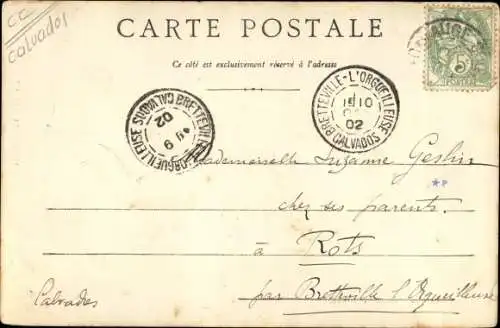 CC
Calvados
CARTE POSTALE
Ce côté est exclusivement réservé à l'adresse
BRETTEVILLE-L'ORGUEILLEUSE
02
CALVADOS
BRETTEVILLE-L'ORGUEILLEUSE CALVADOS
9
02
Mademoiselle Suzanne Geslin
chez ses parents.
à Rots
par Bretteville l'Orgueilleuse
Calvados